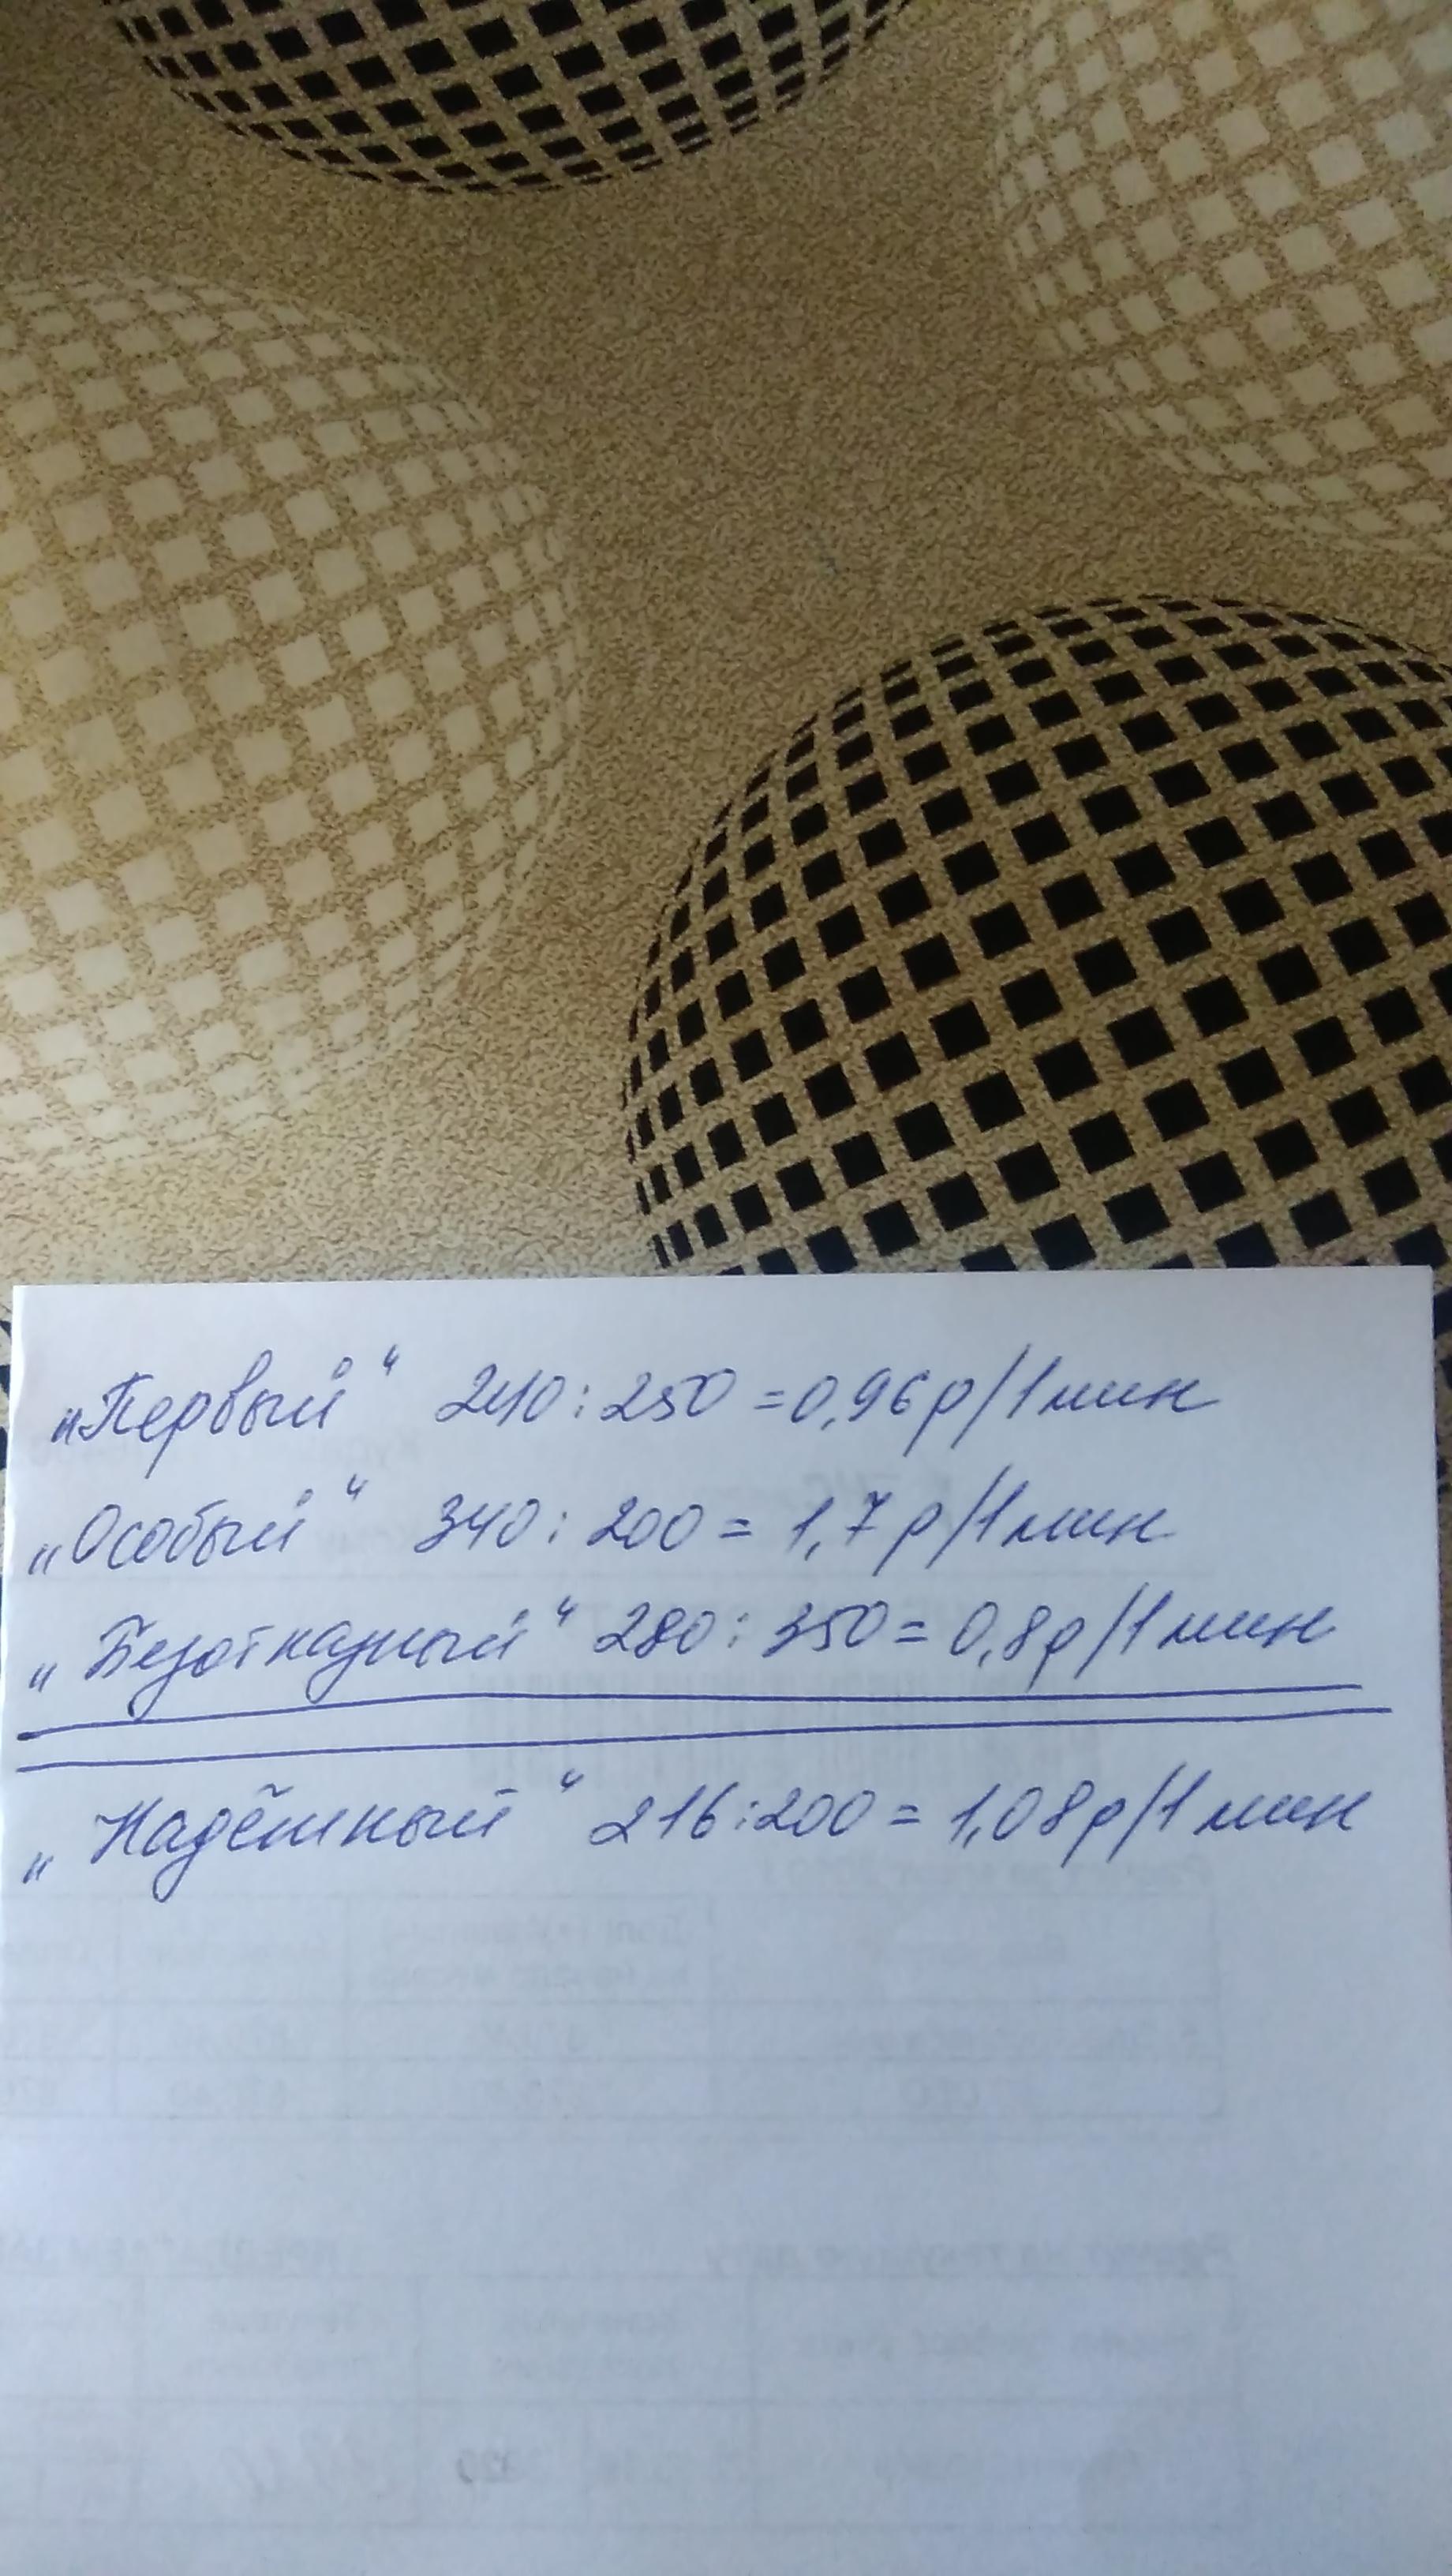 „Первый“ 240 : 250 = 0,96 р/1 мин
„Особый“ 340 : 200 = 1,7 р/1 мин
„Безотказный“ 280 : 350 = 0,8 р/1 мин
„Надёжный“ 216 : 200 = 1,08 р/1 мин